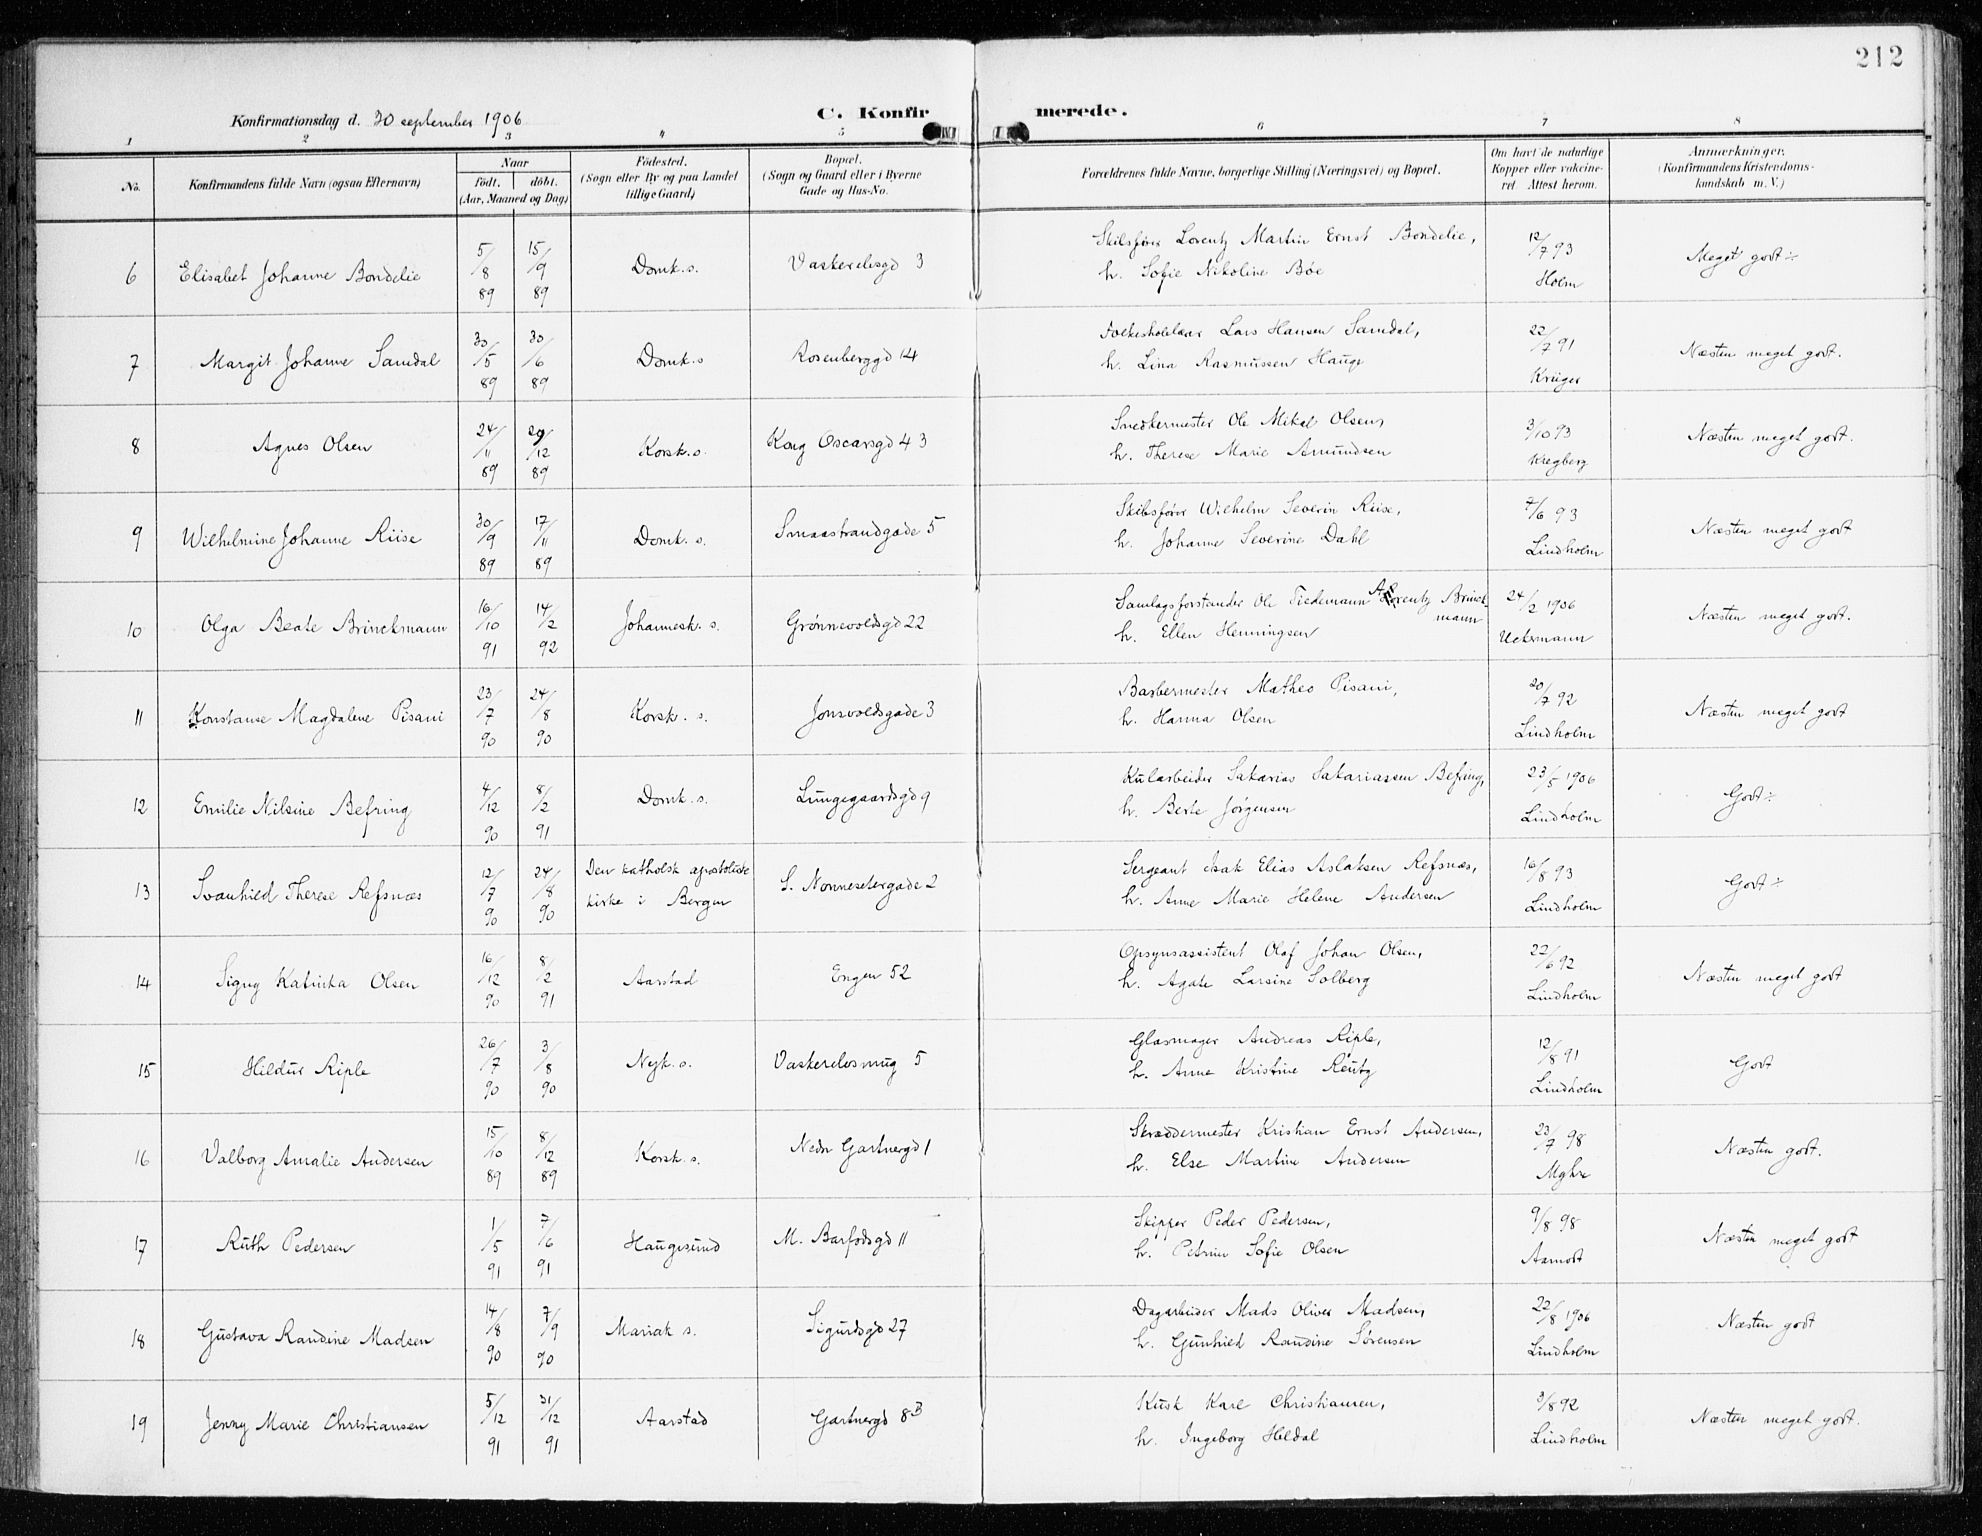 212
Konfirmationsdag d. 30 september 1906
C. Konfirmerede.
1 2 3 4 5 6 7 8
No.
Konfirmandens fulde Navn (ogsaa Efternavn)
Naar
födt. döbt.
(Aar, Maaned og Dag)
Födested.
(Sogn eller By og paa Landet
tillige Gaard)
Bopæl.
(Sogn og Gaard eller i Byerne
Gade og Hus-No.
Forældrenes fulde Navne, borgerlige Stilling (Næringsvei) og Bopæl.
Om havt de naturlige
Kopper eller vakcine-
ret. Attest herom.
Anmærkninger.
(Konfirmandens Kristendoms-
kundskab m. V.)
6 Elisabet Johanne Bondelie 5/8 89 15/9 89 Domk. s. Vaskerelvsgd 3
Skibsfører Lorentz Martin Ernst Bondelie,
h. Sofie Nikoline Bøe
12/7 93
Holm
Meget godt ÷
7 Margit Johanne Samdal 30/5 89 30/6 89 Domk. s Rosenberggd 14
Folkeskolelærer Lars Hansen Samdal,
h. Lina Rasmussen Hauge
22/7 91
Krüger
Næsten meget godt.
8 Agnes Olsen 24/11 89 29/12 89 Korsk. s. Kong Oscarsgd 43
Snedkermester Ole Mikal Olsen,
h. Therese Marie Amundsen
3/10 93
Kregberg
Næsten meget godt.
9 Wilhelmine Johanne Riise 30/9 89 17/11 89 Domk. s. Smaastrandgade 5
Skibsfører Wilhelm Severin Riise,
h. Johanne Severine Dahl
7/6 93
Lindholm
Næsten meget godt
10 Olga Beate Brinckmann 16/10 91 14/2 92 Johannesk. s. Grønnevoldsgd 22
Samlagsforstander Ole Tiedemann Lorentz Brinck
mann
h. Ellen Henningsen
24/2 1906
Uckermann
Næsten meget godt.
11 Konstanse Magdalene Pisani 23/7 90 24/8 90 Korsk. s. Jonsvoldsgade 3
Barbermester Matheo Pisani,
h. Hanna Olsen
20/7 92
Lindholm
Næsten meget godt
12 Emilie Nilsine Befring 4/12 90 8/2 91 Domk. s. Lungegaardsgd 9
Kularbeider Sakarias Sakariassen Befring,
h. Berte Jørgensen
23/5 1906
Lindholm
Godt ÷
13 Svanhild Therese Refsnæs 12/7 90 24/8 90 Den katholsk apostoliske
kirke i Bergen S. Nonnesetergade 2
Sergeant Isak Elias Aslaksen Refsnæs,
h. Anne Marie Helene Andersen
16/8 93
Lindholm
Godt ÷
14 Signy Katinka Olsen 16/12 90 8/2 91 Aarstad Engen 52
Opsynsassistent Olaf Johan Olsen,
h. Agate Larsine Solberg
22/6 92
Lindholm
Næsten meget godt
15 Hildur Riple 26/7 90 3/8 90 Nyk. s. Vaskerelvsmug 5
Glasmager Andreas Riple,
h. Anne Kristine Reutz
12/8 91
Lindholm
Godt
16 Valborg Amalie Andersen 15/10 89 8/12 89 Korsk. s. Nedr Gartnergd 1
Skræddermester Kristian Ernst Andersen,
h. Else Martine Andersen
23/7 98
Myhre
Næsten godt.
17 Ruth Pedersen 1/5 91 7/6 91 Haugesund M. Barfodsgd 11
Skipper Peder Pedersen,
h. Petrine Sofie Olsen
9/8 98
Aamodt
Næsten meget godt
18 Gustava Randine Madsen 14/8 90 7/9 90 Mariak s. Sigurdsgd 27
Dagarbeider Mads Oliver Madsen,
h. Gunhild Randine Sørensen
22/8 1906
Lindholm
Næsten godt
19 Jenny Marie Christiansen 5/12 91 31/12 91 Aarstad Gartnergd 8B
Kusk Karl Christiansen,
h. Ingeborg Hildal
9/8 92
Lindholm
Næsten meget godt.